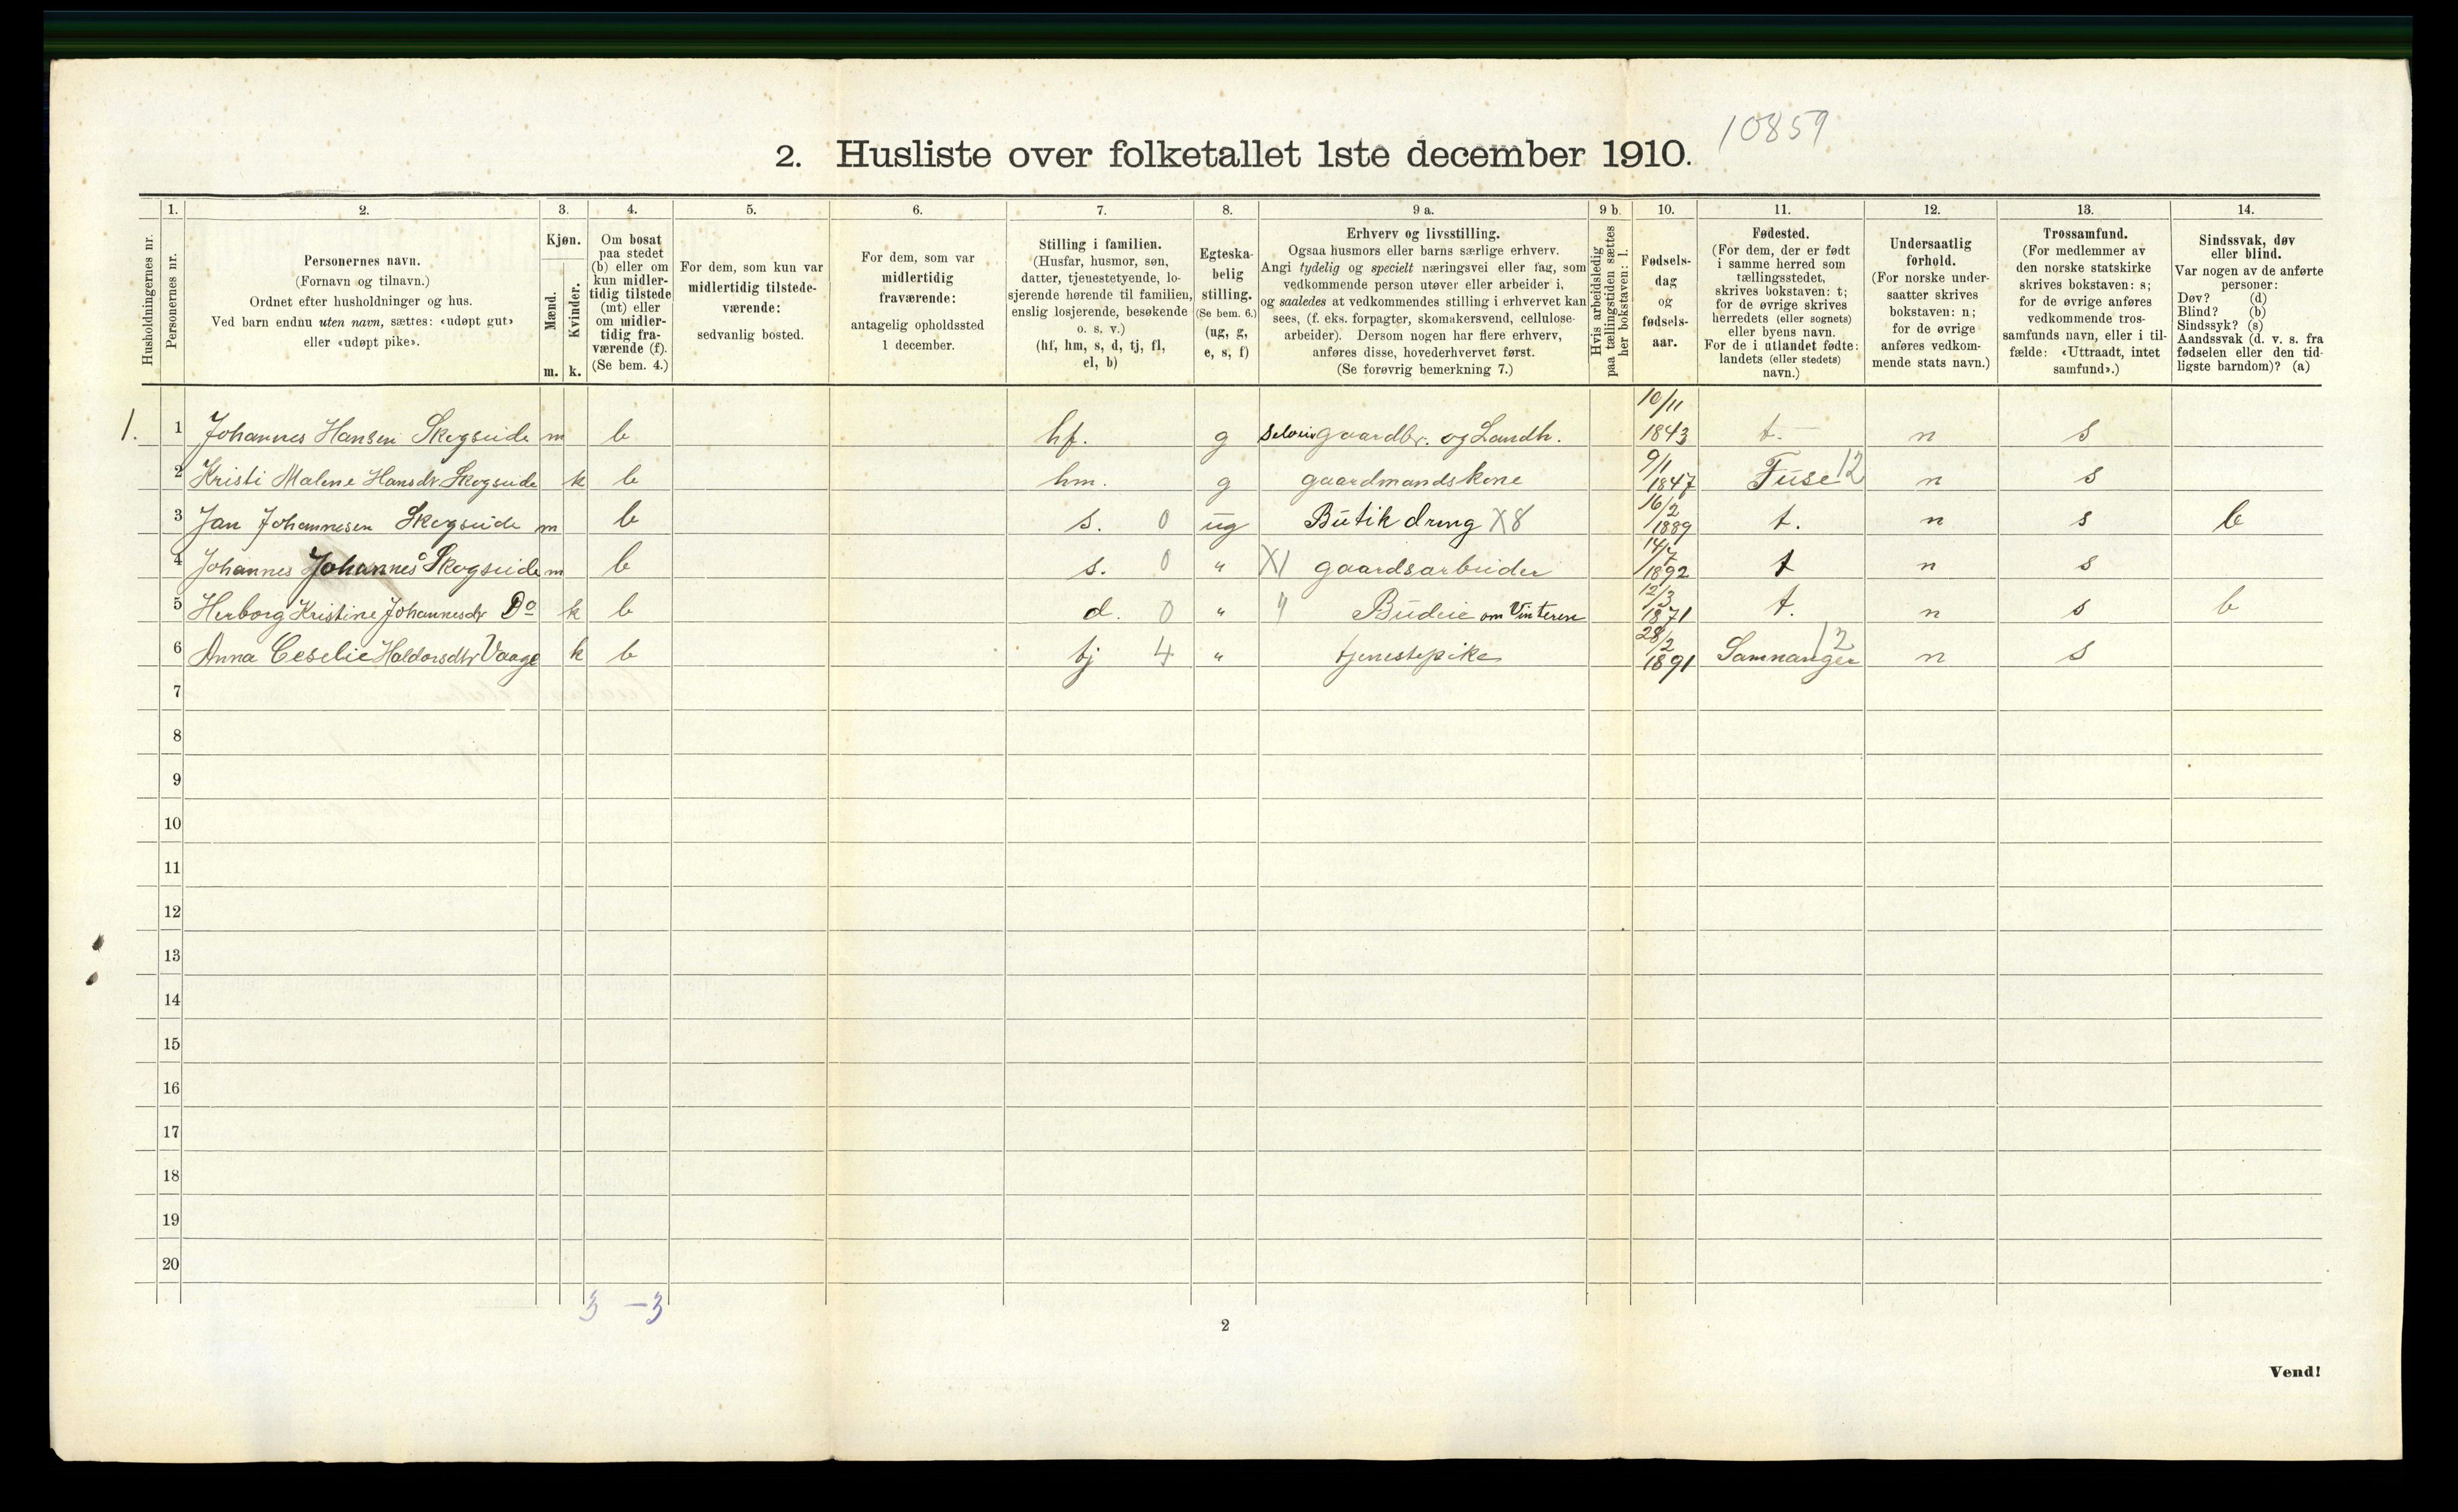 10859
2. Husliste over folketallet 1ste december 1910.
Husholdningernes nr.
1.
Personernes nr.
2.
Personernes navn.
(Fornavn og tilnavn.)
Ordnet efter husholdninger og hus.
Ved barn endnu uten navn, sættes: «udøpt gut»
eller «udøpt pike».
3.
Kjøn.
Mænd.
Kvinder.
m. k.
4.
Om bosat
paa stedet
(b) eller om
kun midler-
tidig tilstede
(mt) eller
om midler-
tidig fra-
værende (f).
(Se bem. 4.)
5.
For dem, som kun var
midlertidig tilstede-
værende:
sedvanlig bosted.
6.
For dem, som var
midlertidig
fraværende:
antagelig opholdssted
1 december.
7.
Stilling i familien.
(Husfar, husmor, søn,
datter, tjenestetyende, lo-
sjerende hørende til familien,
enslig losjerende, besøkende
o. s. v.)
(hf, hm, s, d, tj, fl,
el, b)
8.
Egteska-
belig
stilling.
(Se bem. 6.)
(ug, g,
e, s, f)
9 a.
Erhverv og livsstilling.
Ogsaa husmors eller barns særlige erhverv.
Angi tydelig og specielt næringsvei eller fag, som
vedkommende person utøver eller arbeider i,
og saaledes at vedkommendes stilling i erhvervet kan
sees, (f. eks. forpagter, skomakersvend, cellulose-
arbeider). Dersom nogen har flere erhverv,
anføres disse, hovederhvervet først.
(Se forøvrig bemerkning 7.)
9 b.
Hvis arbeidsledig
paa tællingstiden sættes
her bokstaven: l.
10.
Fødsels-
dag
og
fødsels-
aar.
11.
Fødested.
(For dem, der er født
i samme herred som
tællingsstedet,
skrives bokstaven: t;
for de øvrige skrives
herredets (eller sognets)
eller byens navn.
For de i utlandet fødte:
landets (eller stedets)
navn.)
12.
Undersaatlig
forhold.
(For norske under-
saatter skrives
bokstaven: n;
for de øvrige
anføres vedkom-
mende stats navn.)
13.
Trossamfund.
(For medlemmer av
den norske statskirke
skrives bokstaven: s;
for de øvrige anføres
vedkommende tros-
samfunds navn, eller i til-
fælde: «Uttraadt, intet
samfund».)
14.
Sindssvak, døv
eller blind.
Var nogen av de anførte
personer:
Døv? (d)
Blind? (b)
Sindssyk? (s)
Aandssvak (d. v. s. fra
fødselen eller den tid-
ligste barndom)? (a)
1. 1 Johannes Hansen Skogseide m b hf. g Selveier gaardbr. og Landh. 10/11 1843 t. n s
2 Kristi Malene Hansdr Skogseide k b hm. g gaardmandskone 9/1 1847 Fuse 12 n s
3 Jan Johannesen Skogseide m b s. 0 ug Butik dreng X8 16/2 1889 t. n s b
4 Johannes Johannes Skogseide m b s. 0 " X1 gaardsarbeider 14/7 1892 t n s
5 Herborg Kristine Johannesdr Do k b d. 0 " " Budeie om Vinteren 12/3 1871 t. n s b
6 Anna Ceselie Haldorsdtr Vaage k b tj 4 " tjenestepike 28/2 1891 Samnanger 12 n s
7
8
9
10
11
12
13
14
15
16
17
18
19
20
3 - 3
2
Vend!